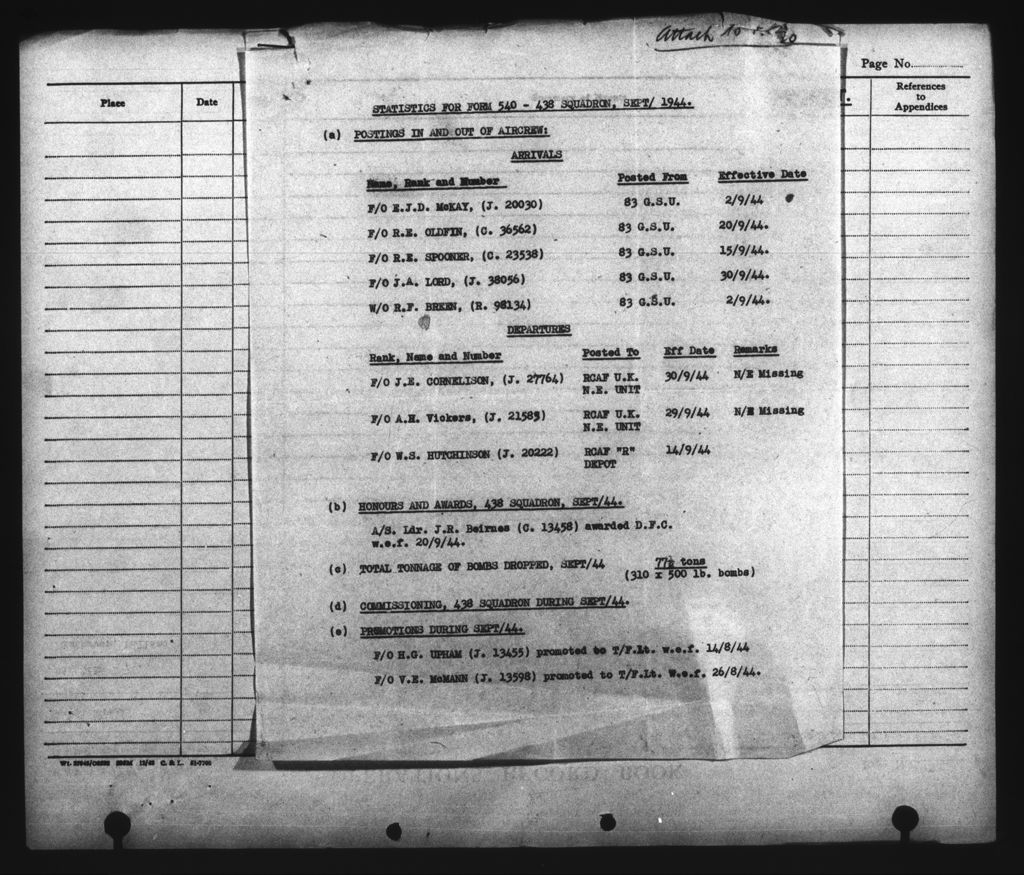 Attach to
Page No.
Place
Date
References
to
Appendices
STATISTICS FOR FORM 540 - 438 SQUADRON, SEPT/ 1944.
(a) POSTINGS IN AND OUT OF AIRCREW:
ARRIVALS
Name, Rank and Number Posted From Effective Date
F/O E.J.D. McKAY, (J. 20030) 83 G.S.U. 2/9/44
F/O R.E. OLDFIN, (C. 36562) 83 G.S.U. 20/9/44.
F/O R.E. SPOONER, (C. 23538) 83 G.S.U. 15/9/44.
F/O J.A. LORD, (J. 38056) 83 G.S.U. 30/9/44.
W/O R.F. BRKEN, (R. 98134) 83 G.S.U. 2/9/44.
DEPARTURES
Rank, Name and Number Posted To Eff Date Remarks
F/O J.E. CORNELISON, (J. 27764) RCAF U.K. 30/9/44 N/E Missing
N.E. UNIT
F/O A.H. Vickers, (J. 21585) RCAF U.K. 29/9/44 N/E Missing
N.E. UNIT
F/O W.S. HUTCHINSON (J. 20222) RCAF "R" 14/9/44
DEPOT
(b) HONOURS AND AWARDS, 438 SQUADRON, SEPT/44.
A/S. Ldr. J.R. Beirnes (C. 13458) awarded D.F.C.
w.e.f. 20/9/44.
(c) TOTAL TONNAGE OF BOMBS DROPPED, SEPT/44 77½ tons
(310 x 500 lb. bombs)
(d) COMMISSIONING, 438 SQUADRON DURING SEPT/44.
(e) PROMOTIONS DURING SEPT/44.
F/O H.G. UPHAM (J. 13455) promoted to T/F.Lt. w.e.f. 14/8/44
F/O V.E. McMANN (J. 13598) promoted to T/F.Lt. W.e.f. 26/8/44.